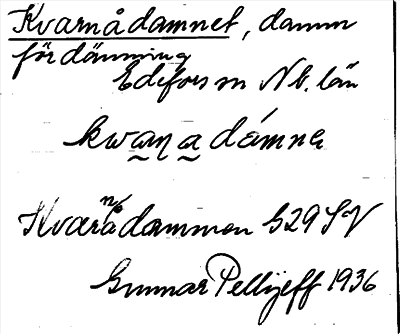 Kvarnådamnet, damm
fördämning
Edefors sn Nb. län
kwaṇa dámnɐ
Kvarnådammen G29 SV
Gunnar Pellijeff 1936